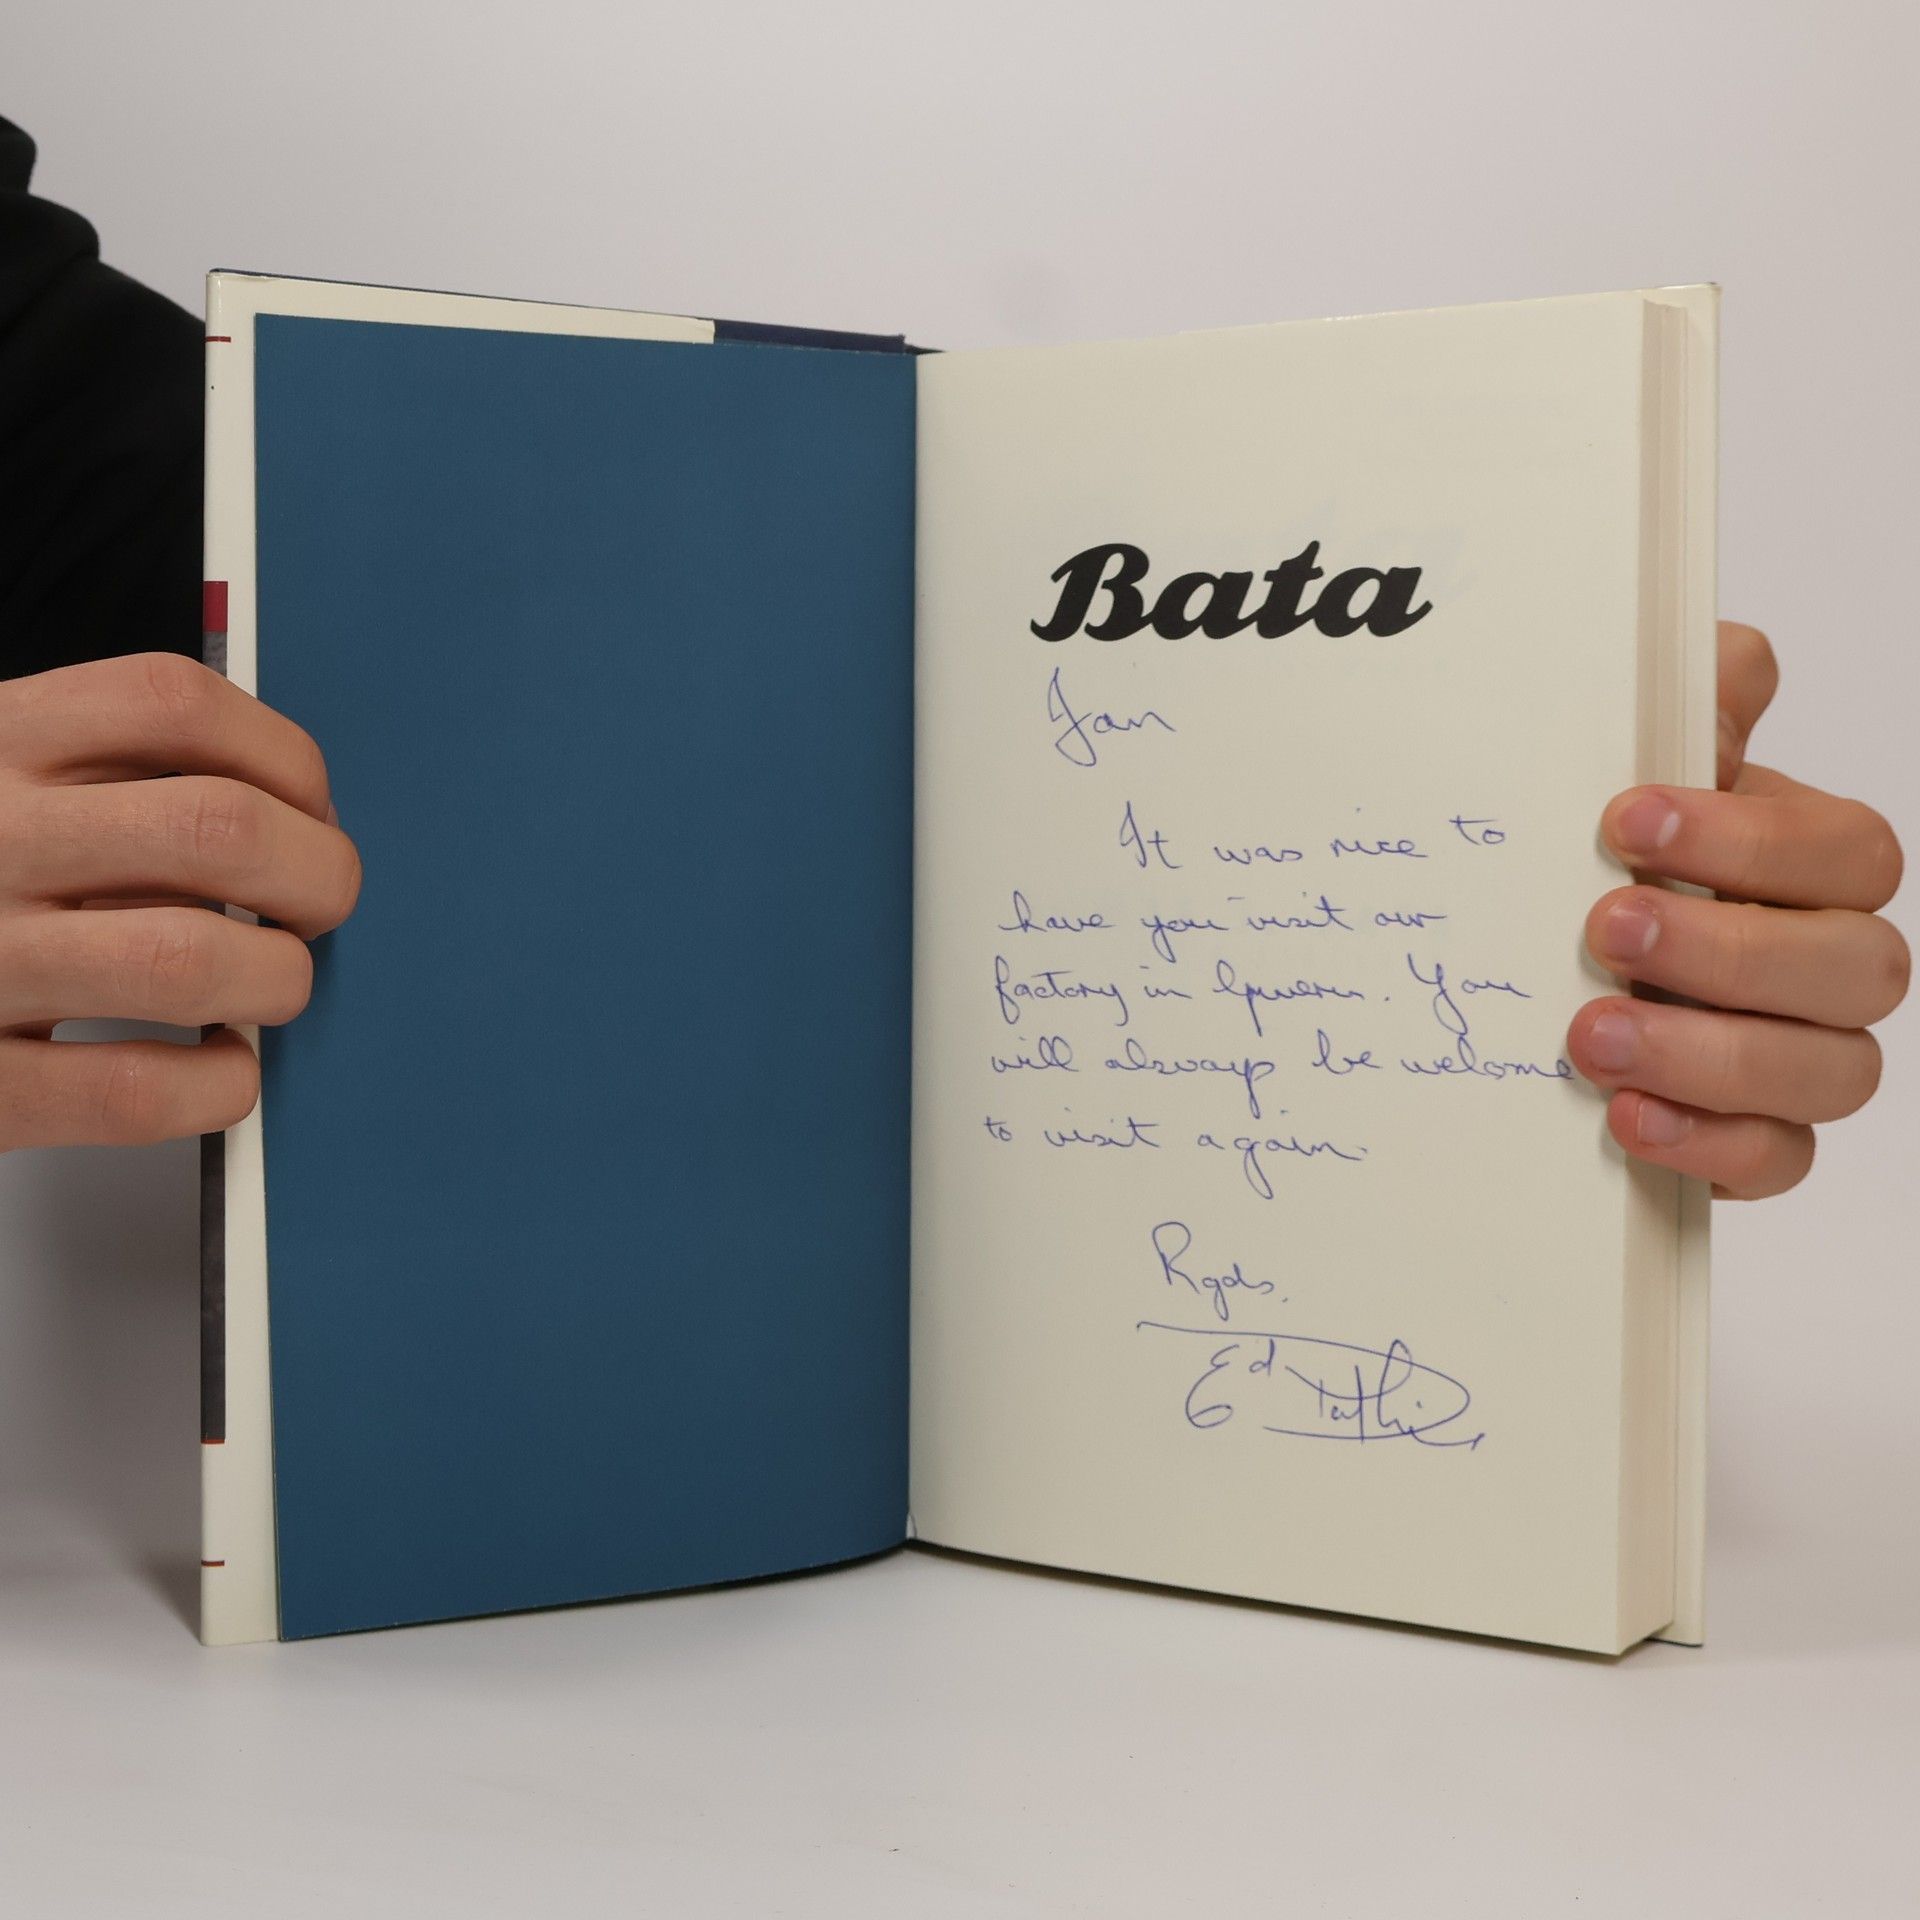 Bata
Jan
It was nice to
have you visit our
factory in Gweru. You
will always be welcome
to visit again.
Rgds.
Ed